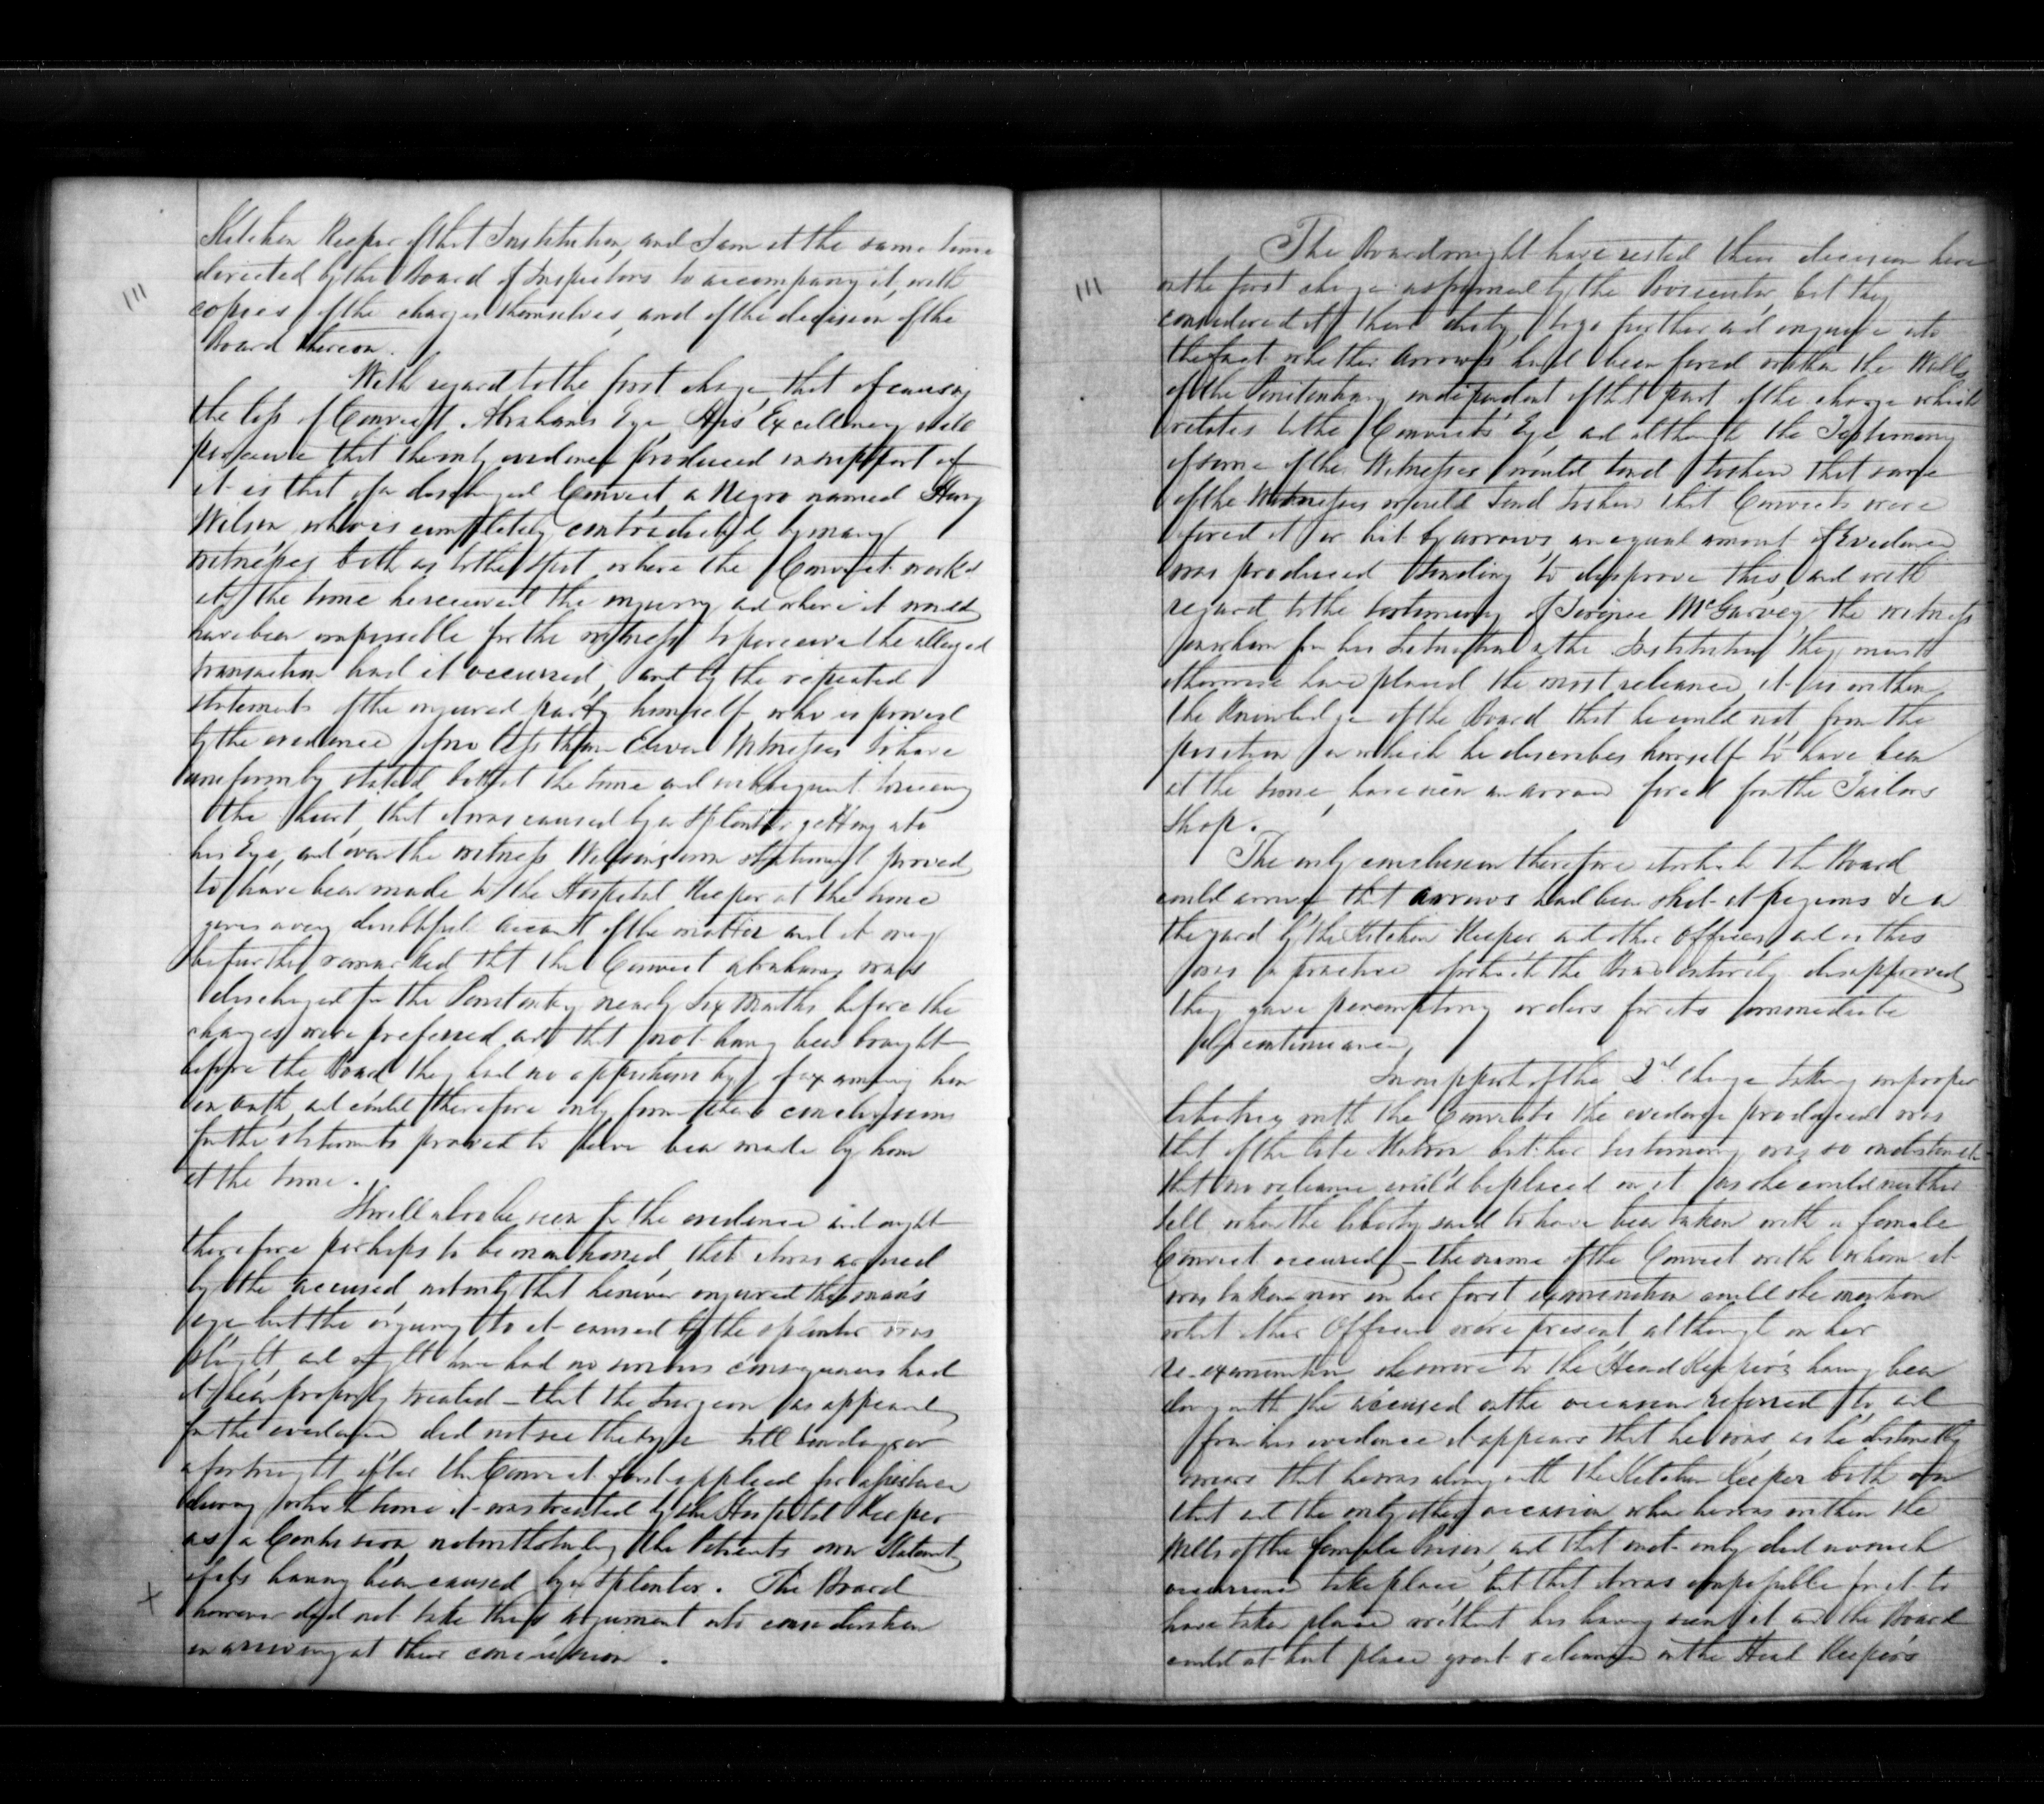 111
Kitchen Keeper of that Institution, and I am at the same time
directed by the Board of Inspectors to accompany it, with
copies of the charges themselves, and of the decision of the
Board thereon.
With regard to the first charge, that of causing
the loss of Convict Abrahams Eye, His Excellency will
perceive that the only evidence produced in support of
it is that of a discharged Convict, a Negro named Henry
Wilson, who is completely contradicted by many
witnesses both as to the spot where the Convict worked
at the time he received the injury and where it would
have been impossible for the witness to perceive the alleged
transaction had it occurred, and by the repeated
statements of the injured party himself who is proved
by the evidence of no less than Eleven Witnesses to have
uniformly stated both at the time and subsequent to receiving
the hurt, that it was caused by a Splinter getting into
his Eye, and even the witness Wilson's own statement proved
to have been made to the Hospital Keeper at the time
gives a very doubtful account of the matter and it may
be further remarked that the Convict Abrahams was
discharged fm the Penitentiary nearly Six Months before the
charges were preferred and that not having been brought
before the Board they had no opportunity of examining him
on oath, and could therefore only form their conclusions
fm the statements proved to have been made by him
at the time.
It will also be seen fm the evidence and ought
therefore perhaps to be mentioned, that it was argued
by the accused not only that he never injured this man's
eye but the injury to it caused by the splinter was
slight and might have had no serious consequences had
it been properly treated – that the Surgeon as appears
fm the evidence did not see the eye till ten days or
a fortnight after the Convict first applied for assistance
during which time it was treated by the Hospital Keeper
as a Contusion notwithstanding the Patients own Statement
of its having been caused by a Splinter. The Board
x
however did not take this argument into consideration
in arriving at their conclusion.
111
The Board might have rested their decision here
on the first charge as framed by the Prosecutor, but they
considered it their duty to go further and enquire into
the fact whether arrows had been fired within the Walls
of the Penitentiary independent of that part of the charge which
relates to the Convict's Eye and although the Testimony
of some of the Witnesses would tend to shew that some
of the Witnesses would tend to shew that Convicts were
fired at or hit by arrows, an equal amount of Evidence
was produced tending to disprove this, and with
regard to the testimony of Terence McGarvey, the witness
on whom fm his Situation in the Institution they must
otherwise have placed the most reliance, it is within
the Knowledge of the Board that he could not, from the
position in which he describes himself to have been
at the time, have seen an arrow fired fm the Tailors
Shop.
The only conclusion therefore at which the Board
could arrive that arrows had been shot at pigeons &c in
the yard by the Kitchen Keeper and other Officers, and as this
was a practice of which the Board entirely disapproved
they gave peremptory orders for its immediate
discontinuance.
In support of the 2d. Charge taking improper
liberties with the Convicts the evidence produced was
that of the late Matron but her testimony was so indistinct
that no reliance could be placed on it as she could neither
tell when the liberty said to have been taken with a female
Convict occurred – the name of the Convict with whom it
was taken nor on her first examination could she mention
what other Officers were present although on her
re-examination she swore to the Head Keeper's having been
along with the accused on the occasion referred to, and
from his evidence it appears that he was, as he distinctly
swears that he was along with the Kitchen Keeper both on
that and the only other occasion when he was within the
Walls of the female Prison, and that not only did no such
occurrence take place, but that it was impossible for it to
have taken place without his having seen it and the Board
could not but place great reliance on the Head Keeper's